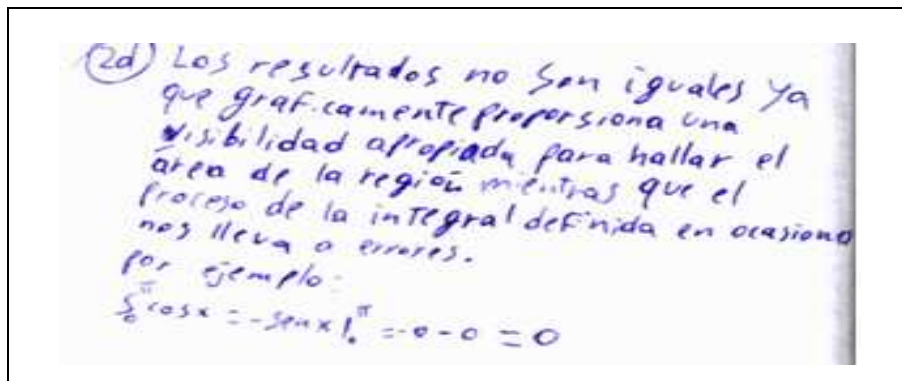 2d) Los resultados no son iguales ya
que graficamente proporsiona una
visibilidad apropiada para hallar el
área de la región mientras que el
proceso de la integral definida en ocasiono
nos lleva a errores.
por ejemplo:
∫₀^π cosx = -senx |₀^π = -0-0 = 0